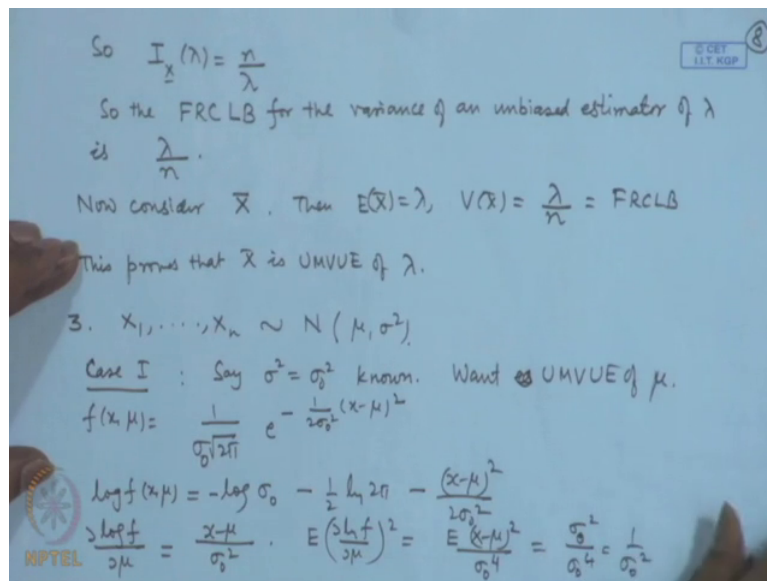 8
© CET
I.I.T. KGP
So I_X(λ) = n/λ
So the FRCLB for the variance of an unbiased estimator of λ
is λ/n.
Now consider X̄. Then E(X̄)=λ, V(X̄) = λ/n = FRCLB
This proves that X̄ is UMVUE of λ.
3. X₁, ...., Xₙ ~ N(μ, σ²).
Case I : Say σ² = σ₀² known. Want UMVUE of μ.
f(x, μ) = 1/(σ₀√2π) e^{- 1/(2σ₀²) (x-μ)²}
log f(x, μ) = -log σ₀ - ½ ln 2π - (x-μ)²/2σ₀²
∂log f/∂μ = (x-μ)/σ₀² . E(∂ln f/∂μ)² = E(x-μ)²/σ₀⁴ = σ₀²/σ₀⁴ = 1/σ₀²
NPTEL